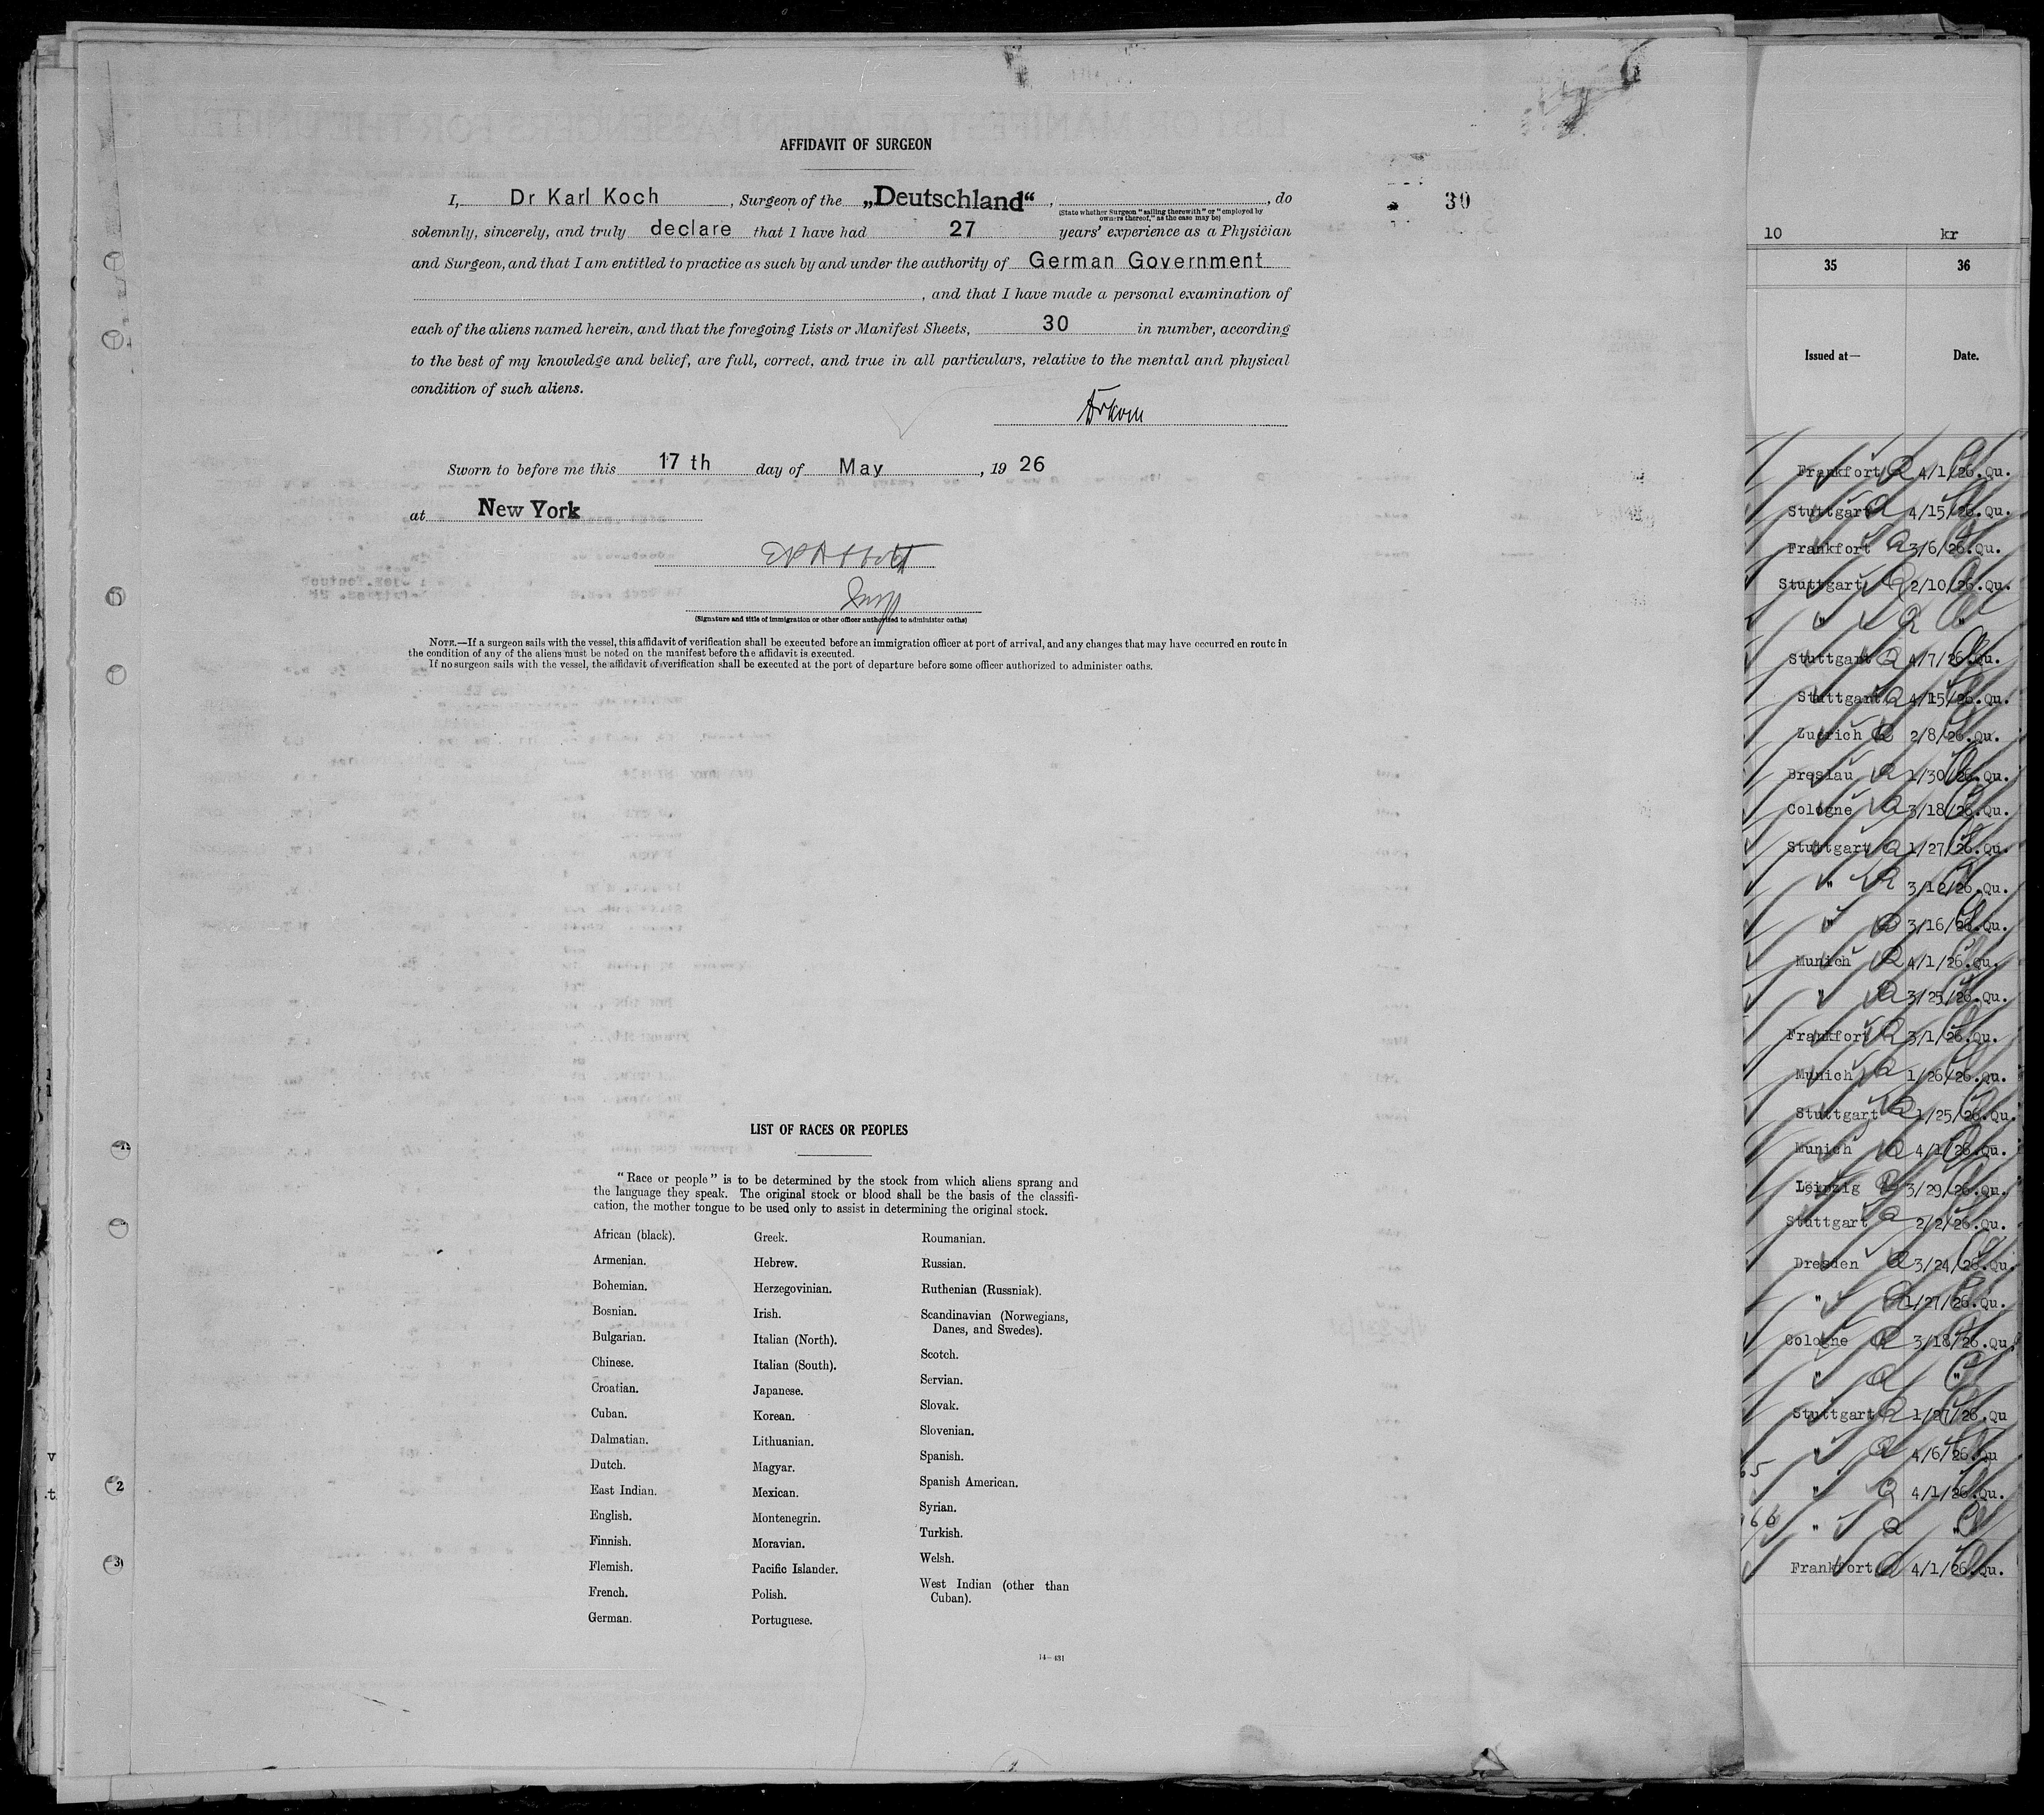 AFFIDAVIT OF SURGEON
I, Dr Karl Koch, Surgeon of the „Deutschland“, , do
(State whether Surgeon “sailing therewith” or “employed by
owners thereof,” as the case may be)
solemnly, sincerely, and truly declare that I have had 27 years’ experience as a Physician
and Surgeon, and that I am entitled to practice as such by and under the authority of German Government
, and that I have made a personal examination of
each of the aliens named herein, and that the foregoing Lists or Manifest Sheets, 30 in number, according
to the best of my knowledge and belief, are full, correct, and true in all particulars, relative to the mental and physical
condition of such aliens.
Sworn to before me this 17 th day of May, 19 26
at New York
(Signature and title of immigration or other officer authorized to administer oaths)
NOTE.—If a surgeon sails with the vessel, this affidavit of verification shall be executed before an immigration officer at port of arrival, and any changes that may have occurred en route in
the condition of any of the aliens must be noted on the manifest before the affidavit is executed.
If no surgeon sails with the vessel, the affidavit of verification shall be executed at the port of departure before some officer authorized to administer oaths.
LIST OF RACES OR PEOPLES
“Race or people” is to be determined by the stock from which aliens sprang and
the language they speak. The original stock or blood shall be the basis of the classifi-
cation, the mother tongue to be used only to assist in determining the original stock.
African (black).
Armenian.
Bohemian.
Bosnian.
Bulgarian.
Chinese.
Croatian.
Cuban.
Dalmatian.
Dutch.
East Indian.
English.
Finnish.
Flemish.
French.
German.
Greek.
Hebrew.
Herzegovinian.
Irish.
Italian (North).
Italian (South).
Japanese.
Korean.
Lithuanian.
Magyar.
Mexican.
Montenegrin.
Moravian.
Pacific Islander.
Polish.
Portuguese.
Roumanian.
Russian.
Ruthenian (Russniak).
Scandinavian (Norwegians,
Danes, and Swedes).
Scotch.
Servian.
Slovak.
Slovenian.
Spanish.
Spanish American.
Syrian.
Turkish.
Welsh.
West Indian (other than
Cuban).
14—431
30
10 kr
35 36
Issued at— Date.
Frankfort 4/1/26.Qu.
Stuttgart 4/15/26.Qu.
Frankfort 3/6/26.Qu.
Stuttgart 2/10/26.Qu.
" "
Stuttgart 4/7/26.Qu.
Stuttgart 4/15/26.Qu.
Zuerich 2/8/26.Qu.
Breslau 1/30/26.Qu.
Cologne 3/18/26.Qu.
Stuttgart 1/27/26.Qu.
" 3/12/26.Qu.
" 3/16/26.Qu.
Munich 4/1/26.Qu.
" 3/25/26.Qu.
Frankfort 3/1/26.Qu.
Munich 1/26/26.Qu.
Stuttgart 1/25/26.Qu.
Munich 4/1/26.Qu.
Leipzig 3/29/26.Qu.
Stuttgart 2/2/26.Qu.
Dresden 3/24/26.Qu.
" 1/27/26.Qu.
Cologne 3/18/26.Qu.
" "
Stuttgart 1/27/26.Qu
" 4/6/26.Qu
" 4/1/26.Qu.
" "
Frankfort 4/1/26.Qu.